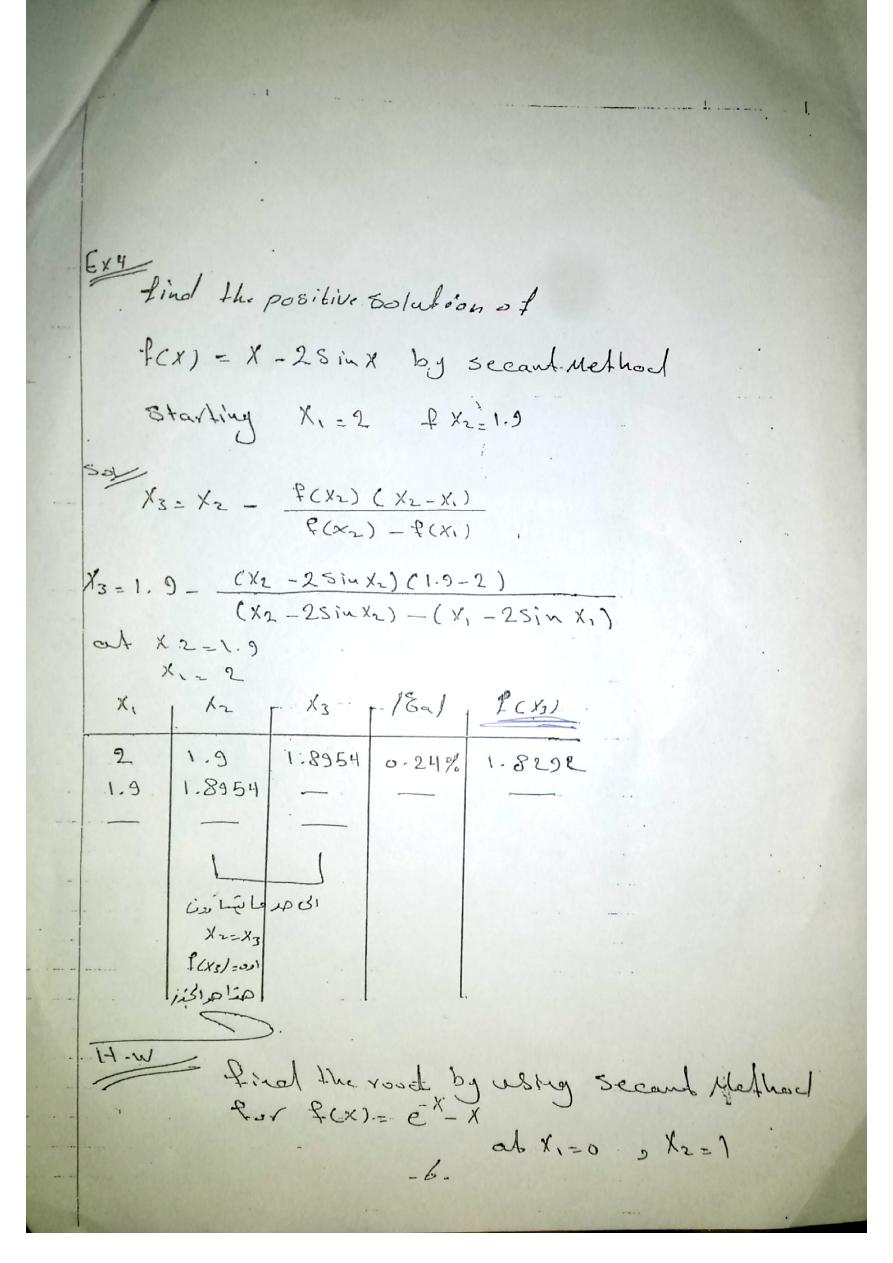 Ex4
find the positive solution of
f(x) = x - 2 sin x by secant Method
Starting x₁ = 2 & x₂ = 1.9
Sol
x₃ = x₂ - f(x₂) (x₂ - x₁) / f(x₂) - f(x₁)
x₃ = 1.9 - (x₂ - 2 sin x₂) (1.9 - 2) / (x₂ - 2 sin x₂) - (x₁ - 2 sin x₁)
at x₂ = 1.9
x₁ = 2
x₁ x₂ x₃ |Ea| f(x₃)
2 1.9 1.8954 0.24% 1.8292
1.9 1.8954 — — —
— — —
الى حد ما يتساوون
x₂ = x₃
f(x₃) =
هذا هو الجذر
H.W
find the root by using secant Method
for f(x) = e⁻ˣ - x
at x₁ = 0 , x₂ = 1
-6-